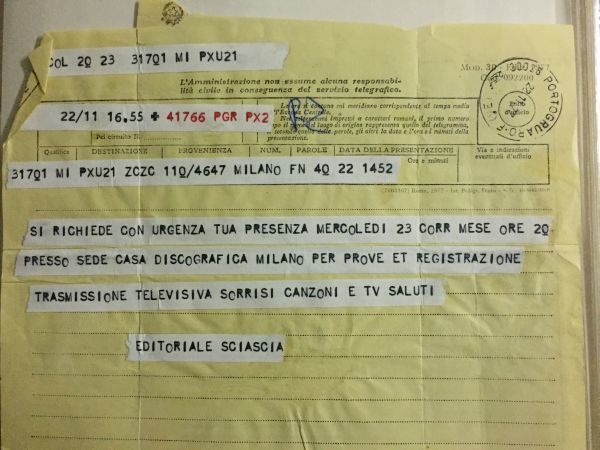 COL 20 23 31701 MI PXU21
L'Amministrazione non assume alcuna responsabi-
lità civile in conseguenza del servizio telegrafico.
Mod. 30
092200
PORTOGRUARO
22/11 16.55 + 41766 PGR PX2
Pel circuito N.
Qualifica DESTINAZIONE PROVENIENZA NUM. PAROLE DATA DELLA PRESENTAZIONE Via e indicazioni
Ore e minuti eventuali d'ufficio
31701 MI PXU21 ZCZC 110/4647 MILANO FN 40 22 1452
SI RICHIEDE CON URGENZA TUA PRESENZA MERCOLEDI 23 CORR MESE ORE 20
PRESSO SEDE CASA DISCOGRAFICA MILANO PER PROVE ET REGISTRAZIONE
TRASMISSIONE TELEVISIVA SORRISI CANZONI E TV SALUTI
EDITORIALE SCIASCIA